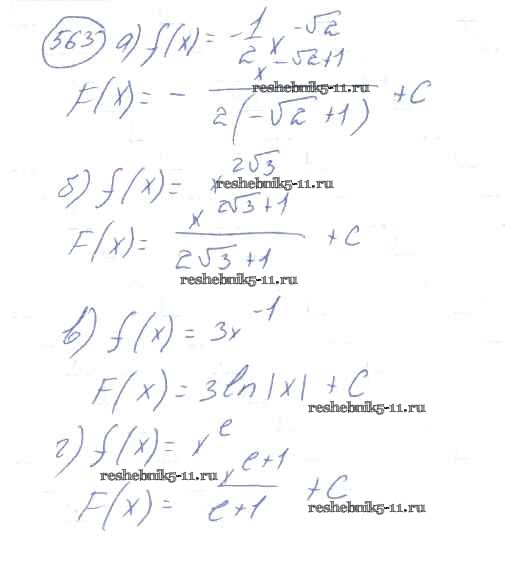 563 а) f(x) = -1/2 x^{-√2}
F(x) = - x^{-√2+1} / 2(-√2+1) + C
reshebnik5-11.ru
б) f(x) = x^{2√3}
reshebnik5-11.ru
F(x) = x^{2√3+1} / 2√3+1 + C
reshebnik5-11.ru
в) f(x) = 3x^{-1}
F(x) = 3ln|x| + C
reshebnik5-11.ru
г) f(x) = x^e
reshebnik5-11.ru
F(x) = x^{e+1} / e+1 + C
reshebnik5-11.ru